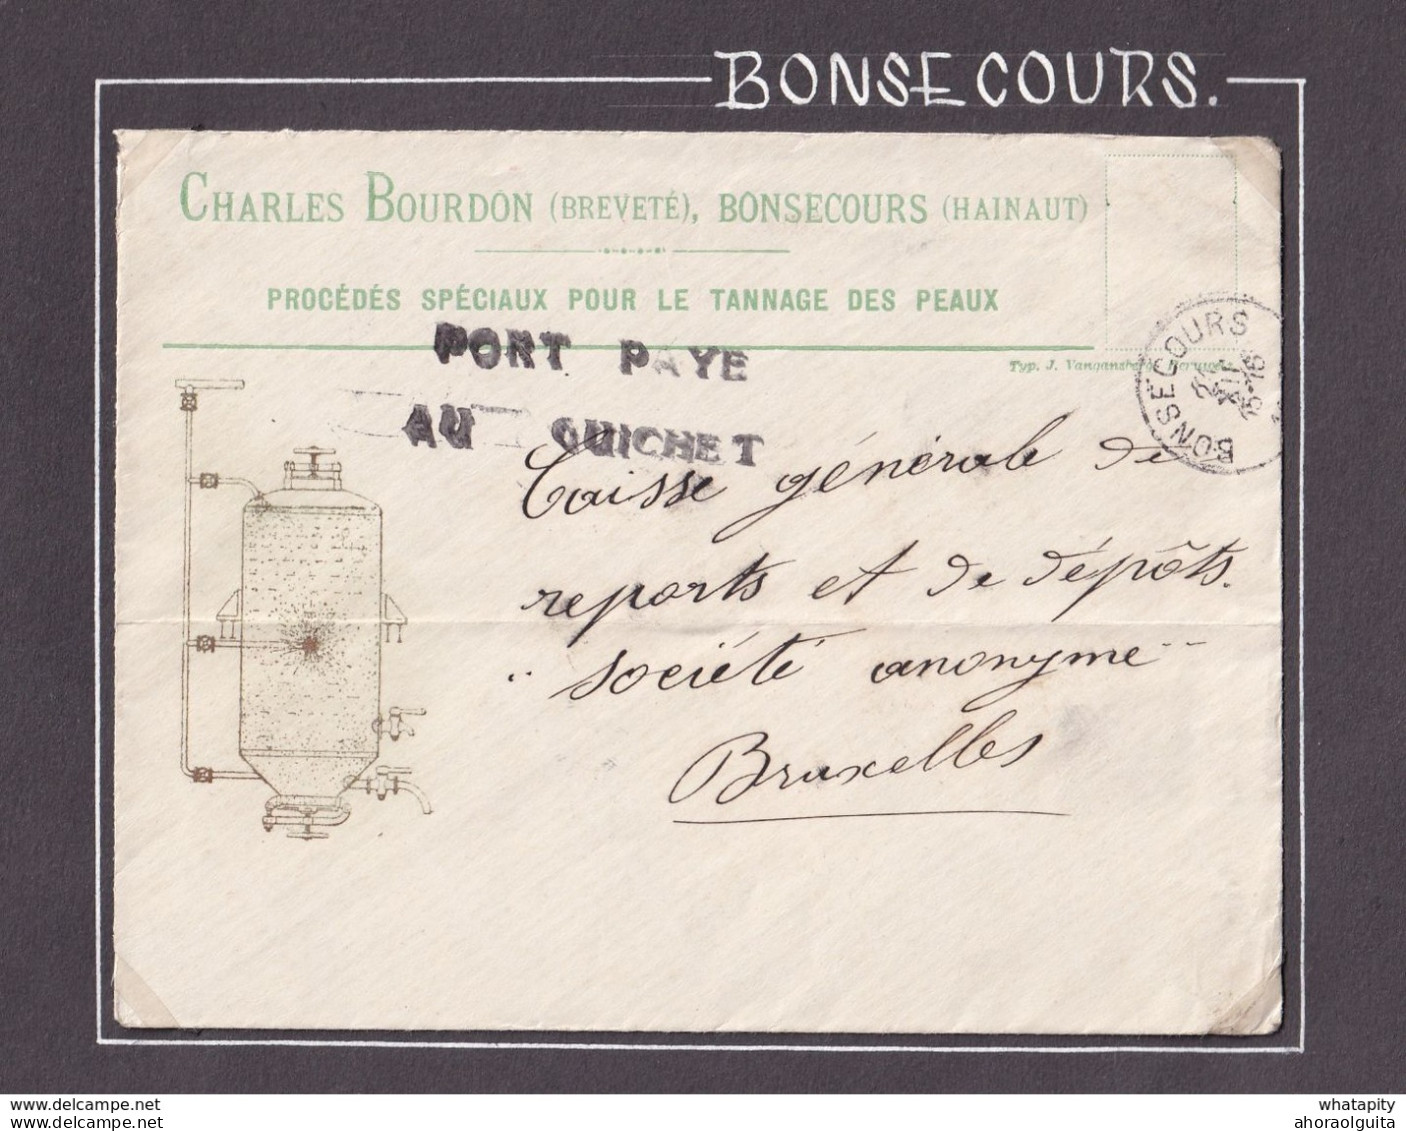 BONSECOURS.
CHARLES BOURDON (BREVETÉ), BONSECOURS (HAINAUT)
PROCÉDÉS SPÉCIAUX POUR LE TANNAGE DES PEAUX
PORT PAYE
AU GUICHET
Typ. J. Vangansberg
BONSECOURS
XII
15-16
Caisse générale de
reports et de dépôts.
"société anonyme"
Bruxelles
delcampe.net
whatapity
ahoraolguita